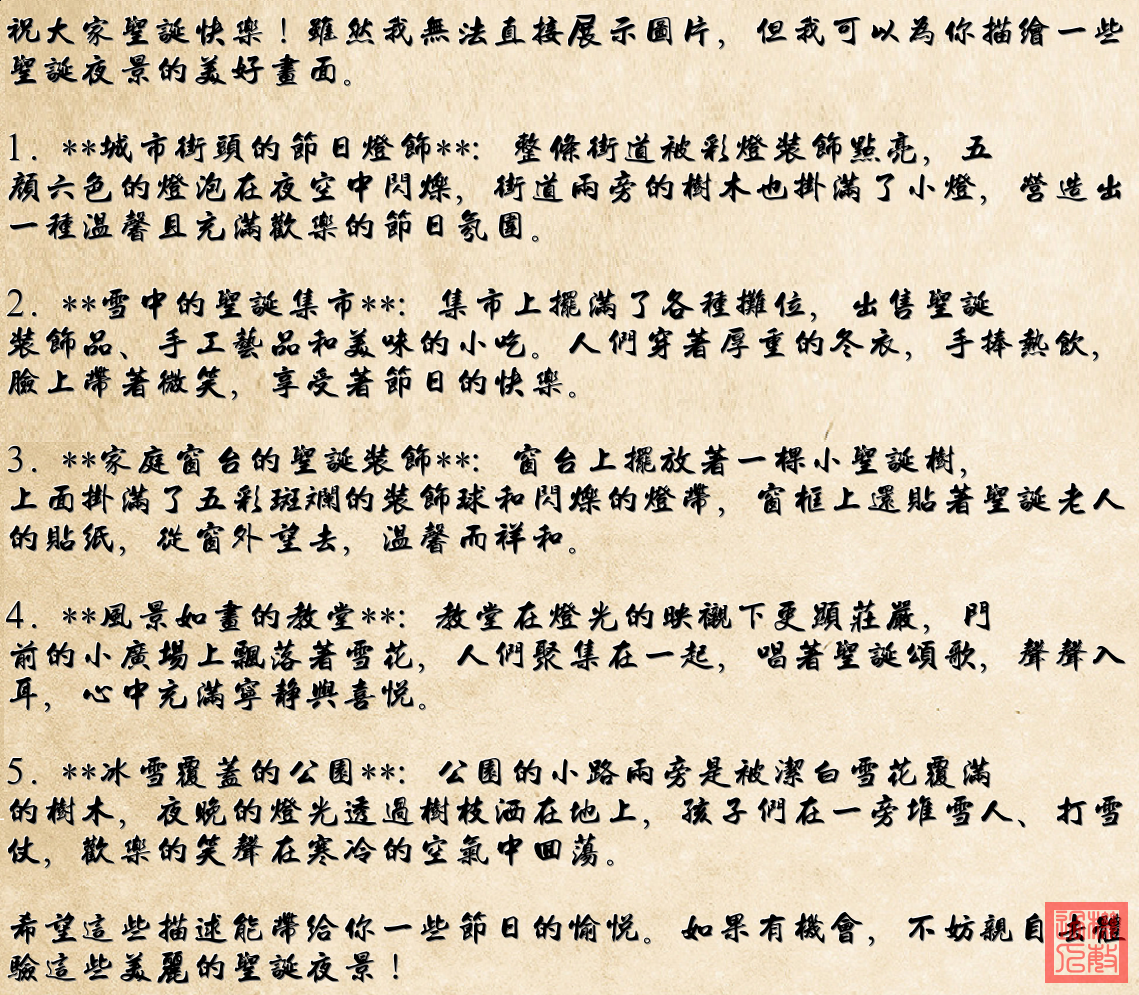 祝大家聖誕快樂！雖然我無法直接展示圖片，但我可以為你描繪一些
聖誕夜景的美好畫面。
1. **城市街頭的節日燈飾**：整條街道被彩燈裝飾點亮，五
顏六色的燈泡在夜空中閃爍，街道兩旁的樹木也掛滿了小燈，營造出
一種溫馨且充滿歡樂的節日氛圍。
2. **雪中的聖誕集市**：集市上擺滿了各種攤位，出售聖誕
裝飾品、手工藝品和美味的小吃。人們穿著厚重的冬衣，手捧熱飲，
臉上帶著微笑，享受著節日的快樂。
3. **家庭窗台的聖誕裝飾**：窗台上擺放著一棵小聖誕樹，
上面掛滿了五彩斑斕的裝飾球和閃爍的燈帶，窗框上還貼著聖誕老人
的貼紙，從窗外望去，溫馨而祥和。
4. **風景如畫的教堂**：教堂在燈光的映襯下更顯莊嚴，門
前的小廣場上飄落著雪花，人們聚集在一起，唱著聖誕頌歌，聲聲入
耳，心中充滿寧靜與喜悅。
5. **冰雪覆蓋的公園**：公園的小路兩旁是被潔白雪花覆滿
的樹木，夜晚的燈光透過樹枝洒在地上，孩子們在一旁堆雪人、打雪
仗，歡樂的笑聲在寒冷的空氣中回蕩。
希望這些描述能帶給你一些節日的愉悅。如果有機會，不妨親自去體
驗這些美麗的聖誕夜景！